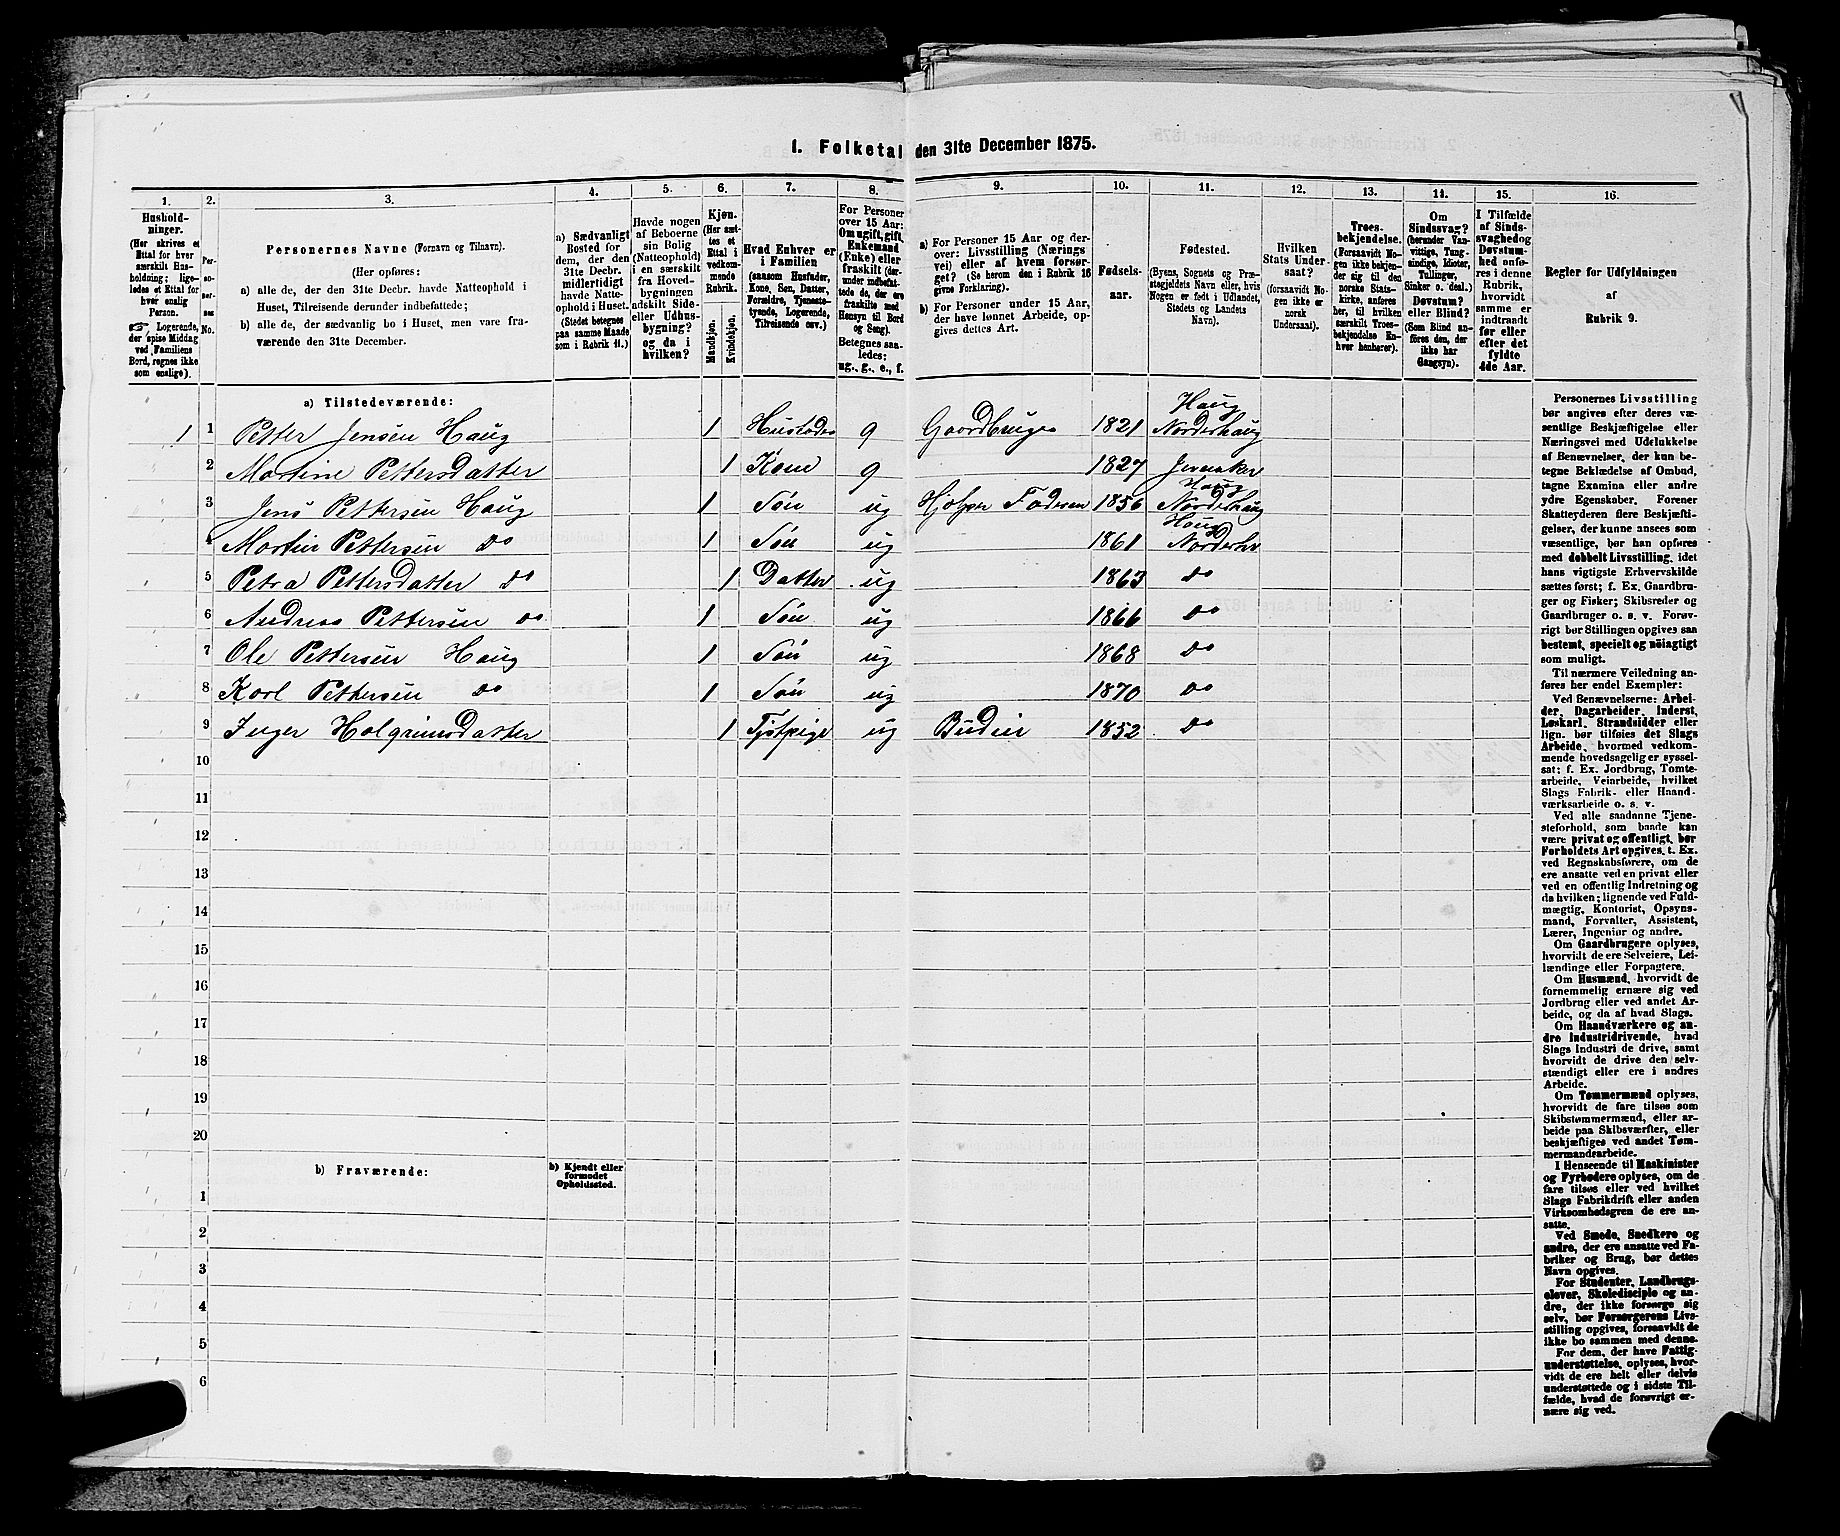 1. Folketal den 31te December 1875.
1. 2. 3. 4. 5. 6. 7. 8. 9. 10. 11. 12. 13. 14. 15. 16.
Hushold-
ninger.
(Her skrives et
Ettal for hver
særskilt Hus-
holdning; lige-
ledes et Ettal for
hver enslig
Person.
☞ Logerende,
der spise Middag
ved Familiens
Bord, regnes ikke
som enslige).
Per-
so-
ner-
nes
No.
Personernes Navne (Fornavn og Tilnavn).
(Her opføres:
a) alle de, der den 31te Decbr. havde Natteophold i
Huset, Tilreisende derunder indbefattede;
b) alle de, der sædvanlig bo i Huset, men vare fra-
værende den 31te December.
a) Sædvanligt
Bosted for
dem, der den
31te Decbr.
midlertidigt
havde Natte-
ophold i Huset.
(Stedet betegnes
paa samme Maade
som i Rubrik 11.)
Havde nogen
af Beboerne
sin Bolig
(Natteophold)
i en særskilt
fra Hoved-
bygningen
adskilt Side-
eller Udhus-
bygning?
og da i
hvilken?
Kjøn.
(Her sæt-
tes et
Ettal i
vedkom-
mende
Rubrik.
Mandkjøn.
Kvindekjøn.
Hvad Enhver er
i Familien
(saasom Husfader,
Kone, Søn, Datter,
Forældre, Tjeneste-
tyende, Logerende,
Tilreisende osv.)
For Personer
over 15 Aar:
Om ugift, gift,
Enkemand
(Enke) eller
fraskilt (der-
under indbefat-
tede de, der ere
fraskilte med
Hensyn til Bord
og Seng).
Betegnes saa-
ledes:
ug., g., e., f.
a) For Personer 15 Aar og der-
over: Livsstilling (Nærings
vei) eller af hvem forsør-
get? (Se herom den i Rubrik 16
givne Forklaring).
b) For Personer under 15 Aar,
der have lønnet Arbeide, op-
gives dettes Art.
Fødsels-
aar.
Fødested.
(Byens, Sognets og Præ-
stegjeldets Navn eller, hvis
Nogen er født i Udlandet,
Stedets og Landets
Navn).
Hvilken
Stats Under-
saat?
(forsaavidt No-
gen ikke er
norsk
Undersaat).
Troes-
bekjendelse.
(Forsaavidt No-
gen ikke bekjen-
der sig til den
norske Stats-
kirke, anføres
her, til hvilken
særskilt Troes-
bekjendelse En-
hver henhører).
Om
Sindssvag?
(herunder Van-
vittige, Tung-
sindige, Idioter,
Tullinger,
Sinker o. desl.)
Døvstum?
eller Blind?
(Som Blind an-
føres den, der
ikke har
Gangsyn).
I Tilfælde
af Sinds-
svaghed og
Døvstum-
hed anfø-
res i denne
Rubrik,
hvorvidt
samme er
indtraadt
før eller
efter det
fyldte
4de Aar.
Regler for Udfyldningen
af
Rubrik 9.
a) Tilstedeværende:
1 1 Petter Jensen Haug 1 Husfader g Gaardbruger 1821 Haug Norderhaug
2 Martine Pettersdatter 1 Kone g 1827 Jevnaker
3 Jens Pettersen Haug 1 Søn ug Hjelper Faderen 1856 Haug Norderhaug
4 Martin Pettersen do 1 Søn ug 1861 Haug Norderh
5 Petra Pettersdatter do 1 Datter ug 1863 do
6 Andreas Pettersen do 1 Søn ug 1866 do
7 Ole Pettersen Haug 1 Søn ug 1868 do
8 Karl Pettersen do 1 Søn ug 1870 do
9 Inger Halgrimsdatter 1 Tjstpige ug Budeie 1852 do
10
11
12
13
14
15
16
17
18
19
20
b) Fraværende:
b) Kjendt eller
formodet
Opholdssted.
1
2
3
4
5
6
Personernes Livsstilling
bør angives efter deres væ-
sentlige Beskjæftigelse eller
Næringsvei med Udelukkelse
af Benævnelser, der kun be-
tegne Beklædelse af Ombud,
tagne Examina eller andre
ydre Egenskaber. Forener
Skatteyderen flere Beskjæfti-
gelser, der kunne ansees som
væsentlige, bør han opføres
med dobbelt Livsstilling, idet
hans vigtigste Erhvervskilde
sættes først; f. Ex. Gaardbru-
ger og Fisker; Skibsreder og
Gaardbruger o. s. v. Forøv-
rigt bør Stillingen opgives saa
bestemt, specielt og nøiagtigt
som muligt.
Til nærmere Veiledning an-
føres her endel Exempler:
Ved Benævnelserne: Arbei-
der, Dagarbeider, Inderst,
Løskarl, Strandsidder eller
lign. bør tilføies det Slags
Arbeide, hvormed vedkom-
mende hovedsagelig er syssel-
sat; f. Ex. Jordbrug, Tomte-
arbeide, Veiarbeide, hvilket
Slags Fabrik- eller Haand-
værksarbeide o. s. v.
Ved alle saadanne Tjene-
steforhold, som baade kan
være privat og offentligt, bør
Forholdets Art opgives, t. Ex.
ved Regnskabsførere, om de
ere ansatte ved en privat eller
ved en offentlig Indretning og
da hvilken; lignende ved Fuld-
mægtig, Kontorist, Opsyns-
mand, Forvalter, Assistent,
Lærer, Ingeniør og andre.
Om Gaardbrugere oplyses,
hvorvidt de ere Selveiere, Lei-
lændinge eller Forpagtere.
Om Husmænd, hvorvidt de
fornemmelig ernære sig ved
Jordbrug eller ved andet Ar-
beide, og da af hvad Slags.
Om Haandværkere og an-
dre Industridrivende, hvad
Slags Industri de drive, samt
hvorvidt de drive den selv-
stændigt eller ere i andres
Arbeide.
Om Tømmermænd oplyses,
hvorvidt de fare tilsøs som
Skibstømmermænd, eller ar-
beide paa Skibsværfter, eller
beskjæftiges ved andet Tøm-
mermandsarbeide.
I Henseende til Maskinister
og Fyrbødere oplyses, om de
fare tilsøs eller ved hvilket
Slags Fabrikdrift eller anden
Virksomhedsgren de ere an-
satte.
Ved Smede, Snedkere og
andre, der ere ansatte ved Fa-
briker og Brug, bør dettes
Navn opgives.
For Studenter, Landbrugs-
elever, Skoledisciple og an-
dre, der ikke forsørge sig
selv, bør Forsørgerens Livs-
stilling opgives, forsaavidt de
ikke bo sammen med denne.
For dem, der have Fattig-
understøttelse, oplyses, hvor-
vidt de ere helt eller delvis
understøttede og i sidste Til-
fælde, hvad de forøvrigt er-
nære sig ved.